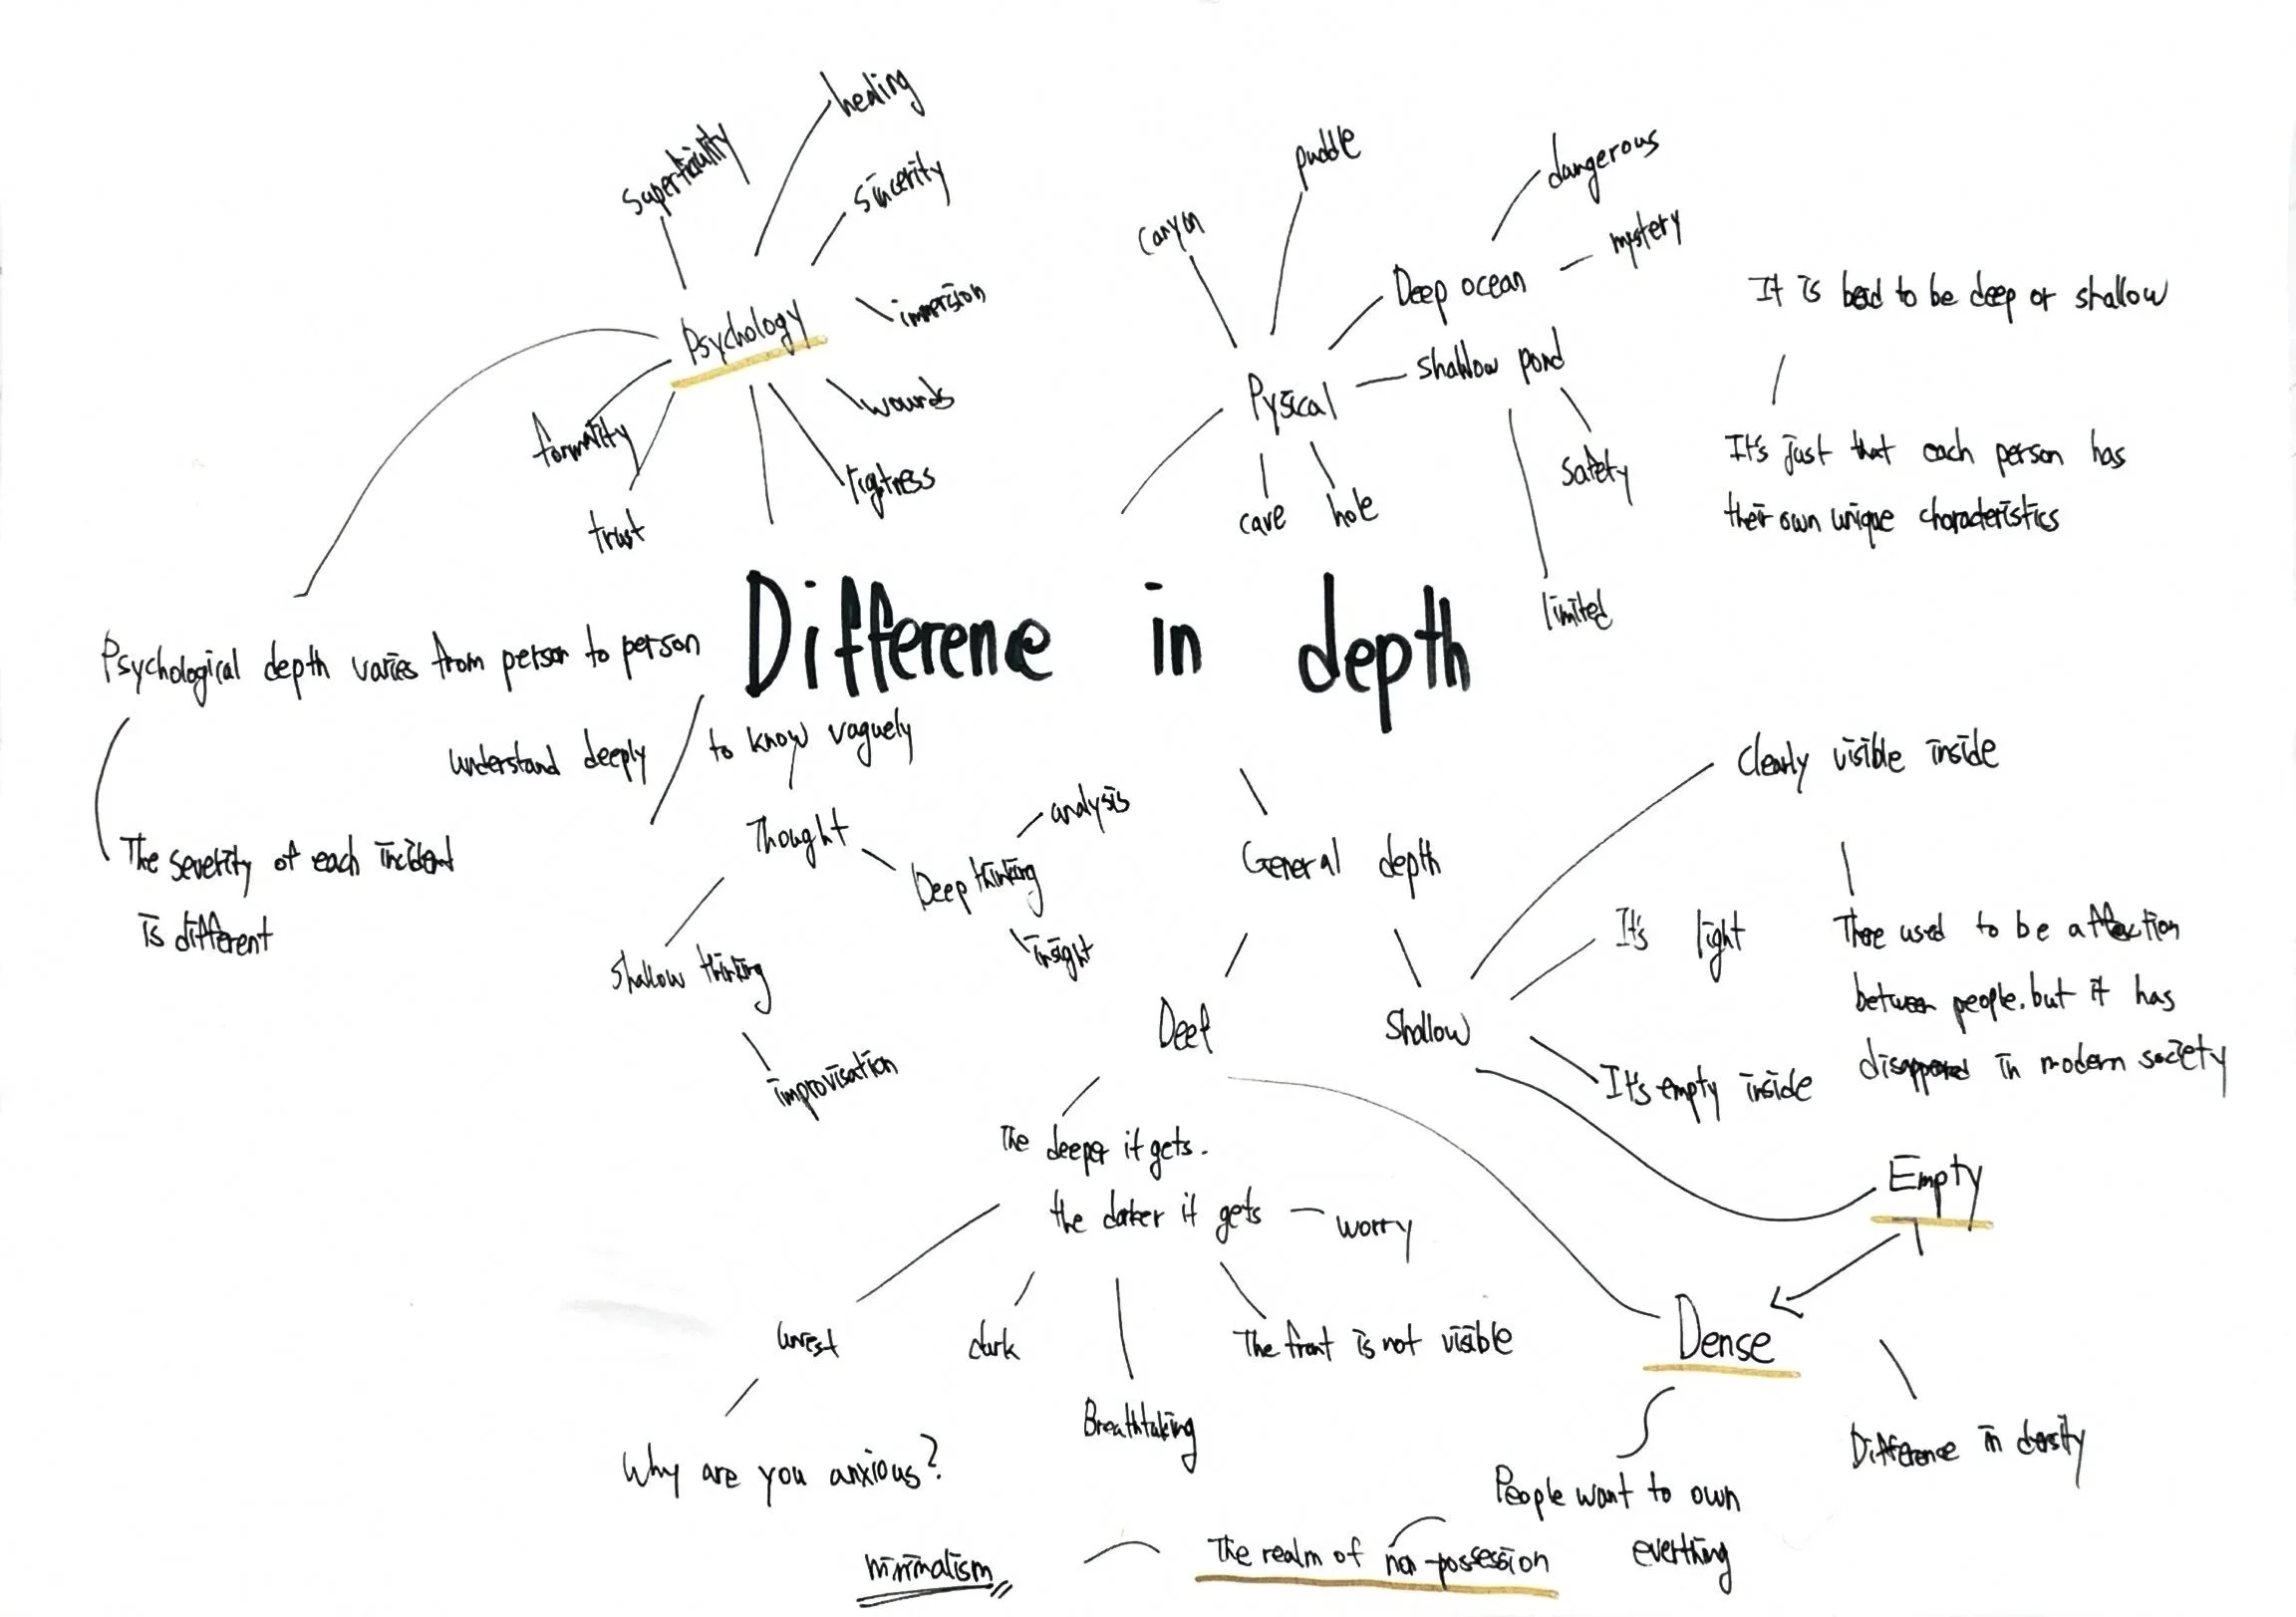 healing
superficiality
sincerity
Psychology
immersion
wounds
formality
trust
puddle
canyon
dangerous
mystery
Deep ocean
shallow pond
Pysical
cave
hole
safety
limited
It is bad to be deep or shallow
It's just that each person has
their own unique characteristics
Differene in depth
Psychological depth varies from person to person
understand deeply
to know vaguely
The severity of each incident
is different
Thought
analysis
Deep thinking
insight
Shallow thinking
improvisation
General depth
Deep
Shallow
Clearly visible inside
It's light
It's empty inside
There used to be affection
between people. but it has
disappeared in modern society
The deeper it gets.
the darker it gets
worry
unrest
dark
Breathtaking
The front is not visible
Why are you anxious?
Empty
Dense
Difference in density
People want to own
everthing
The realm of non-possession
minimalism